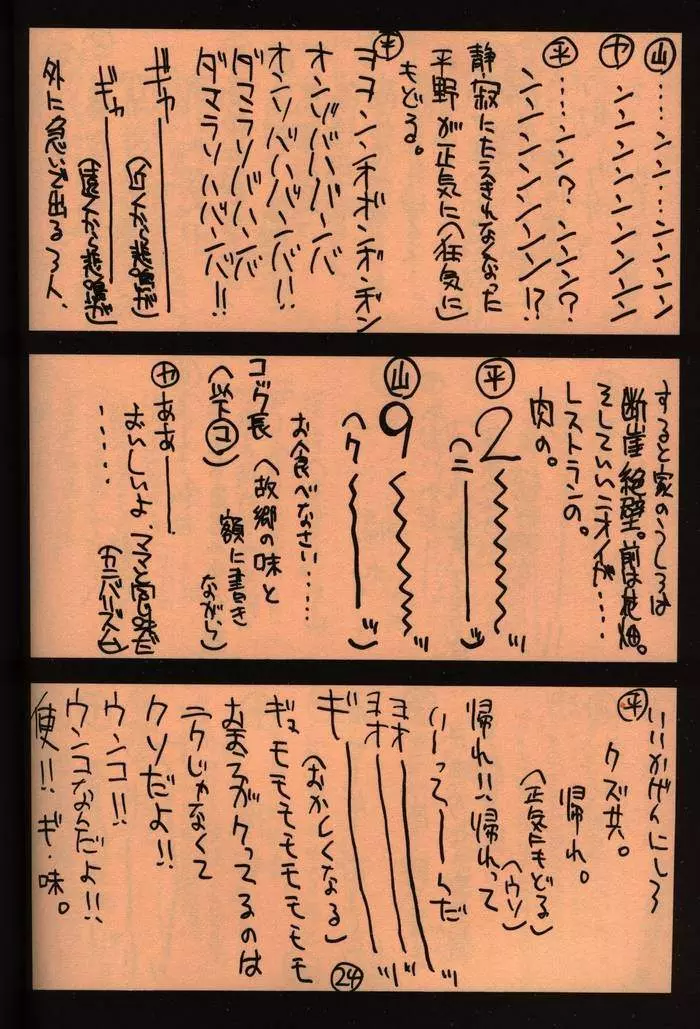 ㊤…ンン…ンンンン
ヤ ンンンンンンンン
平 …ンン？ンンン？
ンンンンンンンン!?
静寂にたえきれなくなった
平野が正気に(狂気に)
もどる。
平 ヨヨンンオボンギンギン
オンゾババーバ
オンソバババーバ!!
ダマラソババーバ
ダマラソハバーバ!!
ギャ――
(近くから悲鳴が)
ギャ――
(遠くから悲鳴が)
外に急いで出る3人、
すると家のうしろは
断崖絶壁。前は花畑。
そしていいニオイが……
レストランの。
肉の。
平 2 〰〰ッ
(ニ――ッ)
山 9 〰〰ッ
(ク〰〰ッ)
お食べなさい……
コック長(故郷の味と
額に書き
ながら)
(以下コ)
ヤ ああ――
おいしいよ、ママと宮の味だ
(カニバリズム)
……
平 いいかげんにしろ
クズ共。
帰れ。
(正気にもどる)
(ウソ)
帰れ!!帰れって
いーってーんだ
ヨオ――ッ
ヨオ――ッ
ギ――ッ
(おかしくなる)
ギュモモモモモモモモ
おまえがクってるのは
ニクじゃなくて
クソだよ!!
ウンコ!!
ウンコなんだよ!!
便!!ギ・味。
24